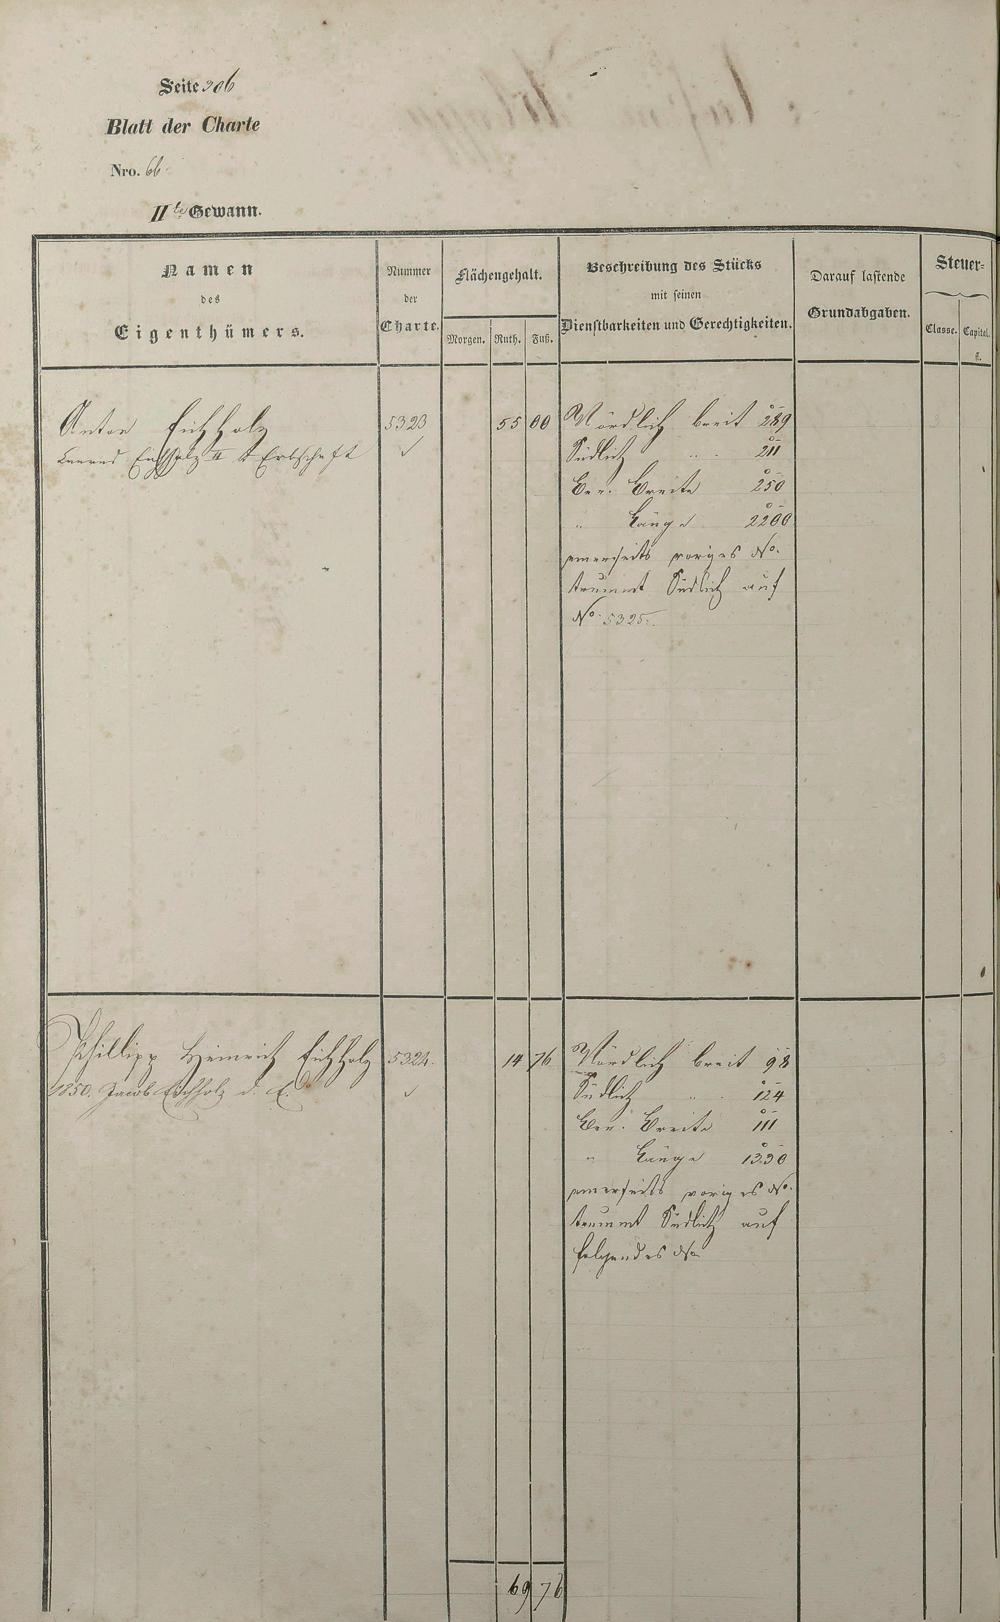 Seite 306
Blatt der Charte
Nro. 66
IIte Gewann.
Namen
des
Eigenthümers.
Nummer
der
Charte.
Flächengehalt.
Morgen. Ruth. Fuß.
Beschreibung des Stücks
mit seinen
Dienstbarkeiten und Gerechtigkeiten.
Darauf lastende
Grundabgaben.
Steuer-
Classe. Capital.
fl.
Anton Eichholz 5323 55 00 Nördlich breit 289
Eichholz II d Erbschaft Südlich " 211
Ber. Breite 250
" Länge 2200
jenerseits voriges No.
Südlich auf
No. 5325.
Phillipp Heinrich Eichholz 5324. 14 76 Nördlich breit 98
1850. Jacob Eichholz d. E. Südlich " 124
Ber. Breite 111
" Länge 1330
jenerseits voriges No.
Südlich auf
folgendes No.
69 76